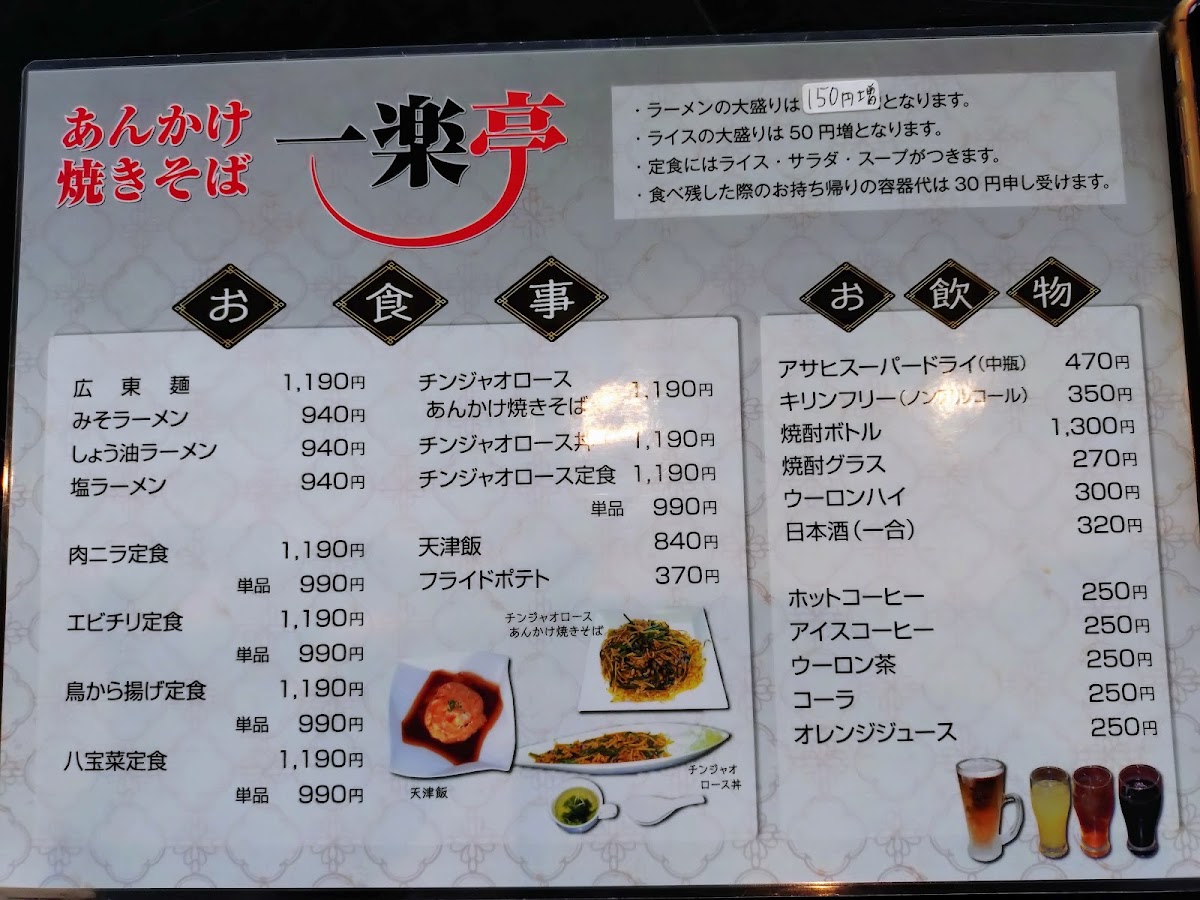 あんかけ
焼きそば
一楽亭
・ラーメンの大盛りは150円増となります。
・ライスの大盛りは50円増となります。
・定食にはライス・サラダ・スープがつきます。
・食べ残した際のお持ち帰りの容器代は30円申し受けます。
お食事
広東麺 1,190円
みそラーメン 940円
しょう油ラーメン 940円
塩ラーメン 940円
肉ニラ定食 1,190円
単品 990円
エビチリ定食 1,190円
単品 990円
鳥から揚げ定食 1,190円
単品 990円
八宝菜定食 1,190円
単品 990円
チンジャオロース
あんかけ焼きそば 1,190円
チンジャオロース丼 1,190円
チンジャオロース定食 1,190円
単品 990円
天津飯 840円
フライドポテト 370円
チンジャオロース
あんかけ焼きそば
天津飯
チンジャオ
ロース丼
お飲物
アサヒスーパードライ(中瓶) 470円
キリンフリー(ノンアルコール) 350円
焼酎ボトル 1,300円
焼酎グラス 270円
ウーロンハイ 300円
日本酒(一合) 320円
ホットコーヒー 250円
アイスコーヒー 250円
ウーロン茶 250円
コーラ 250円
オレンジジュース 250円